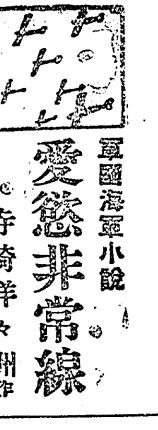 軍國海軍小說
愛慾非常線
寺崎洋